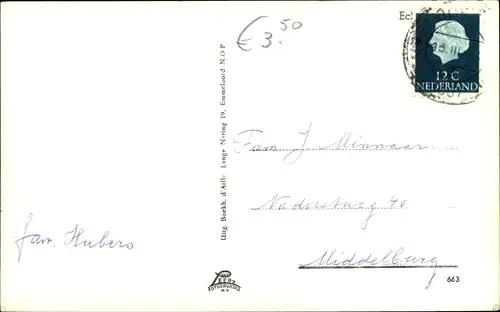 € 3.50
Ec
12 C
NEDERLAND
Uitg. Boekh. d'Arife Lange Nering 19, Emmeloord N.O.P
Fam J Minnaar
40
Middelburg
fam. Hubers
FOTODRUKKERIJ
663